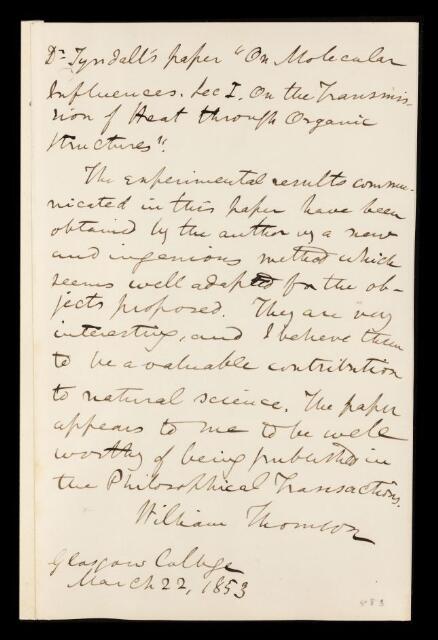 Dr Tyndall's paper "On Molecular
Influences. Sec I. On the Transmis-
sion of Heat through Organic
Structures".
The experimental results commu-
nicated in this paper have been
obtained by the author by a new
and ingenious method which
seems well adapted for the ob-
jects proposed. They are very
interesting, and I believe them
to be a valuable contribution
to natural science. The paper
appears to me to be well
worthy of being published in
the Philosophical Transactions.
William Thomson
Glasgow College
March 22, 1853